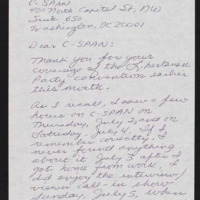 C-SPAN
400 North Capitol St, NW
Suite 650
Washington, DC 20001
Dear C-SPAN:
Thank you for your
coverage of the Libertarian
Party convention earlier
this month.
As I recall, I saw a few
hours on C-SPAN on
Thursday, July 2, and on
Saturday, July 4. If I
remember correctly, I
never found anything
about it July 3 after I
got home from work. I
did enjoy the interview/
viewer call-in show
Sunday, July 5, when